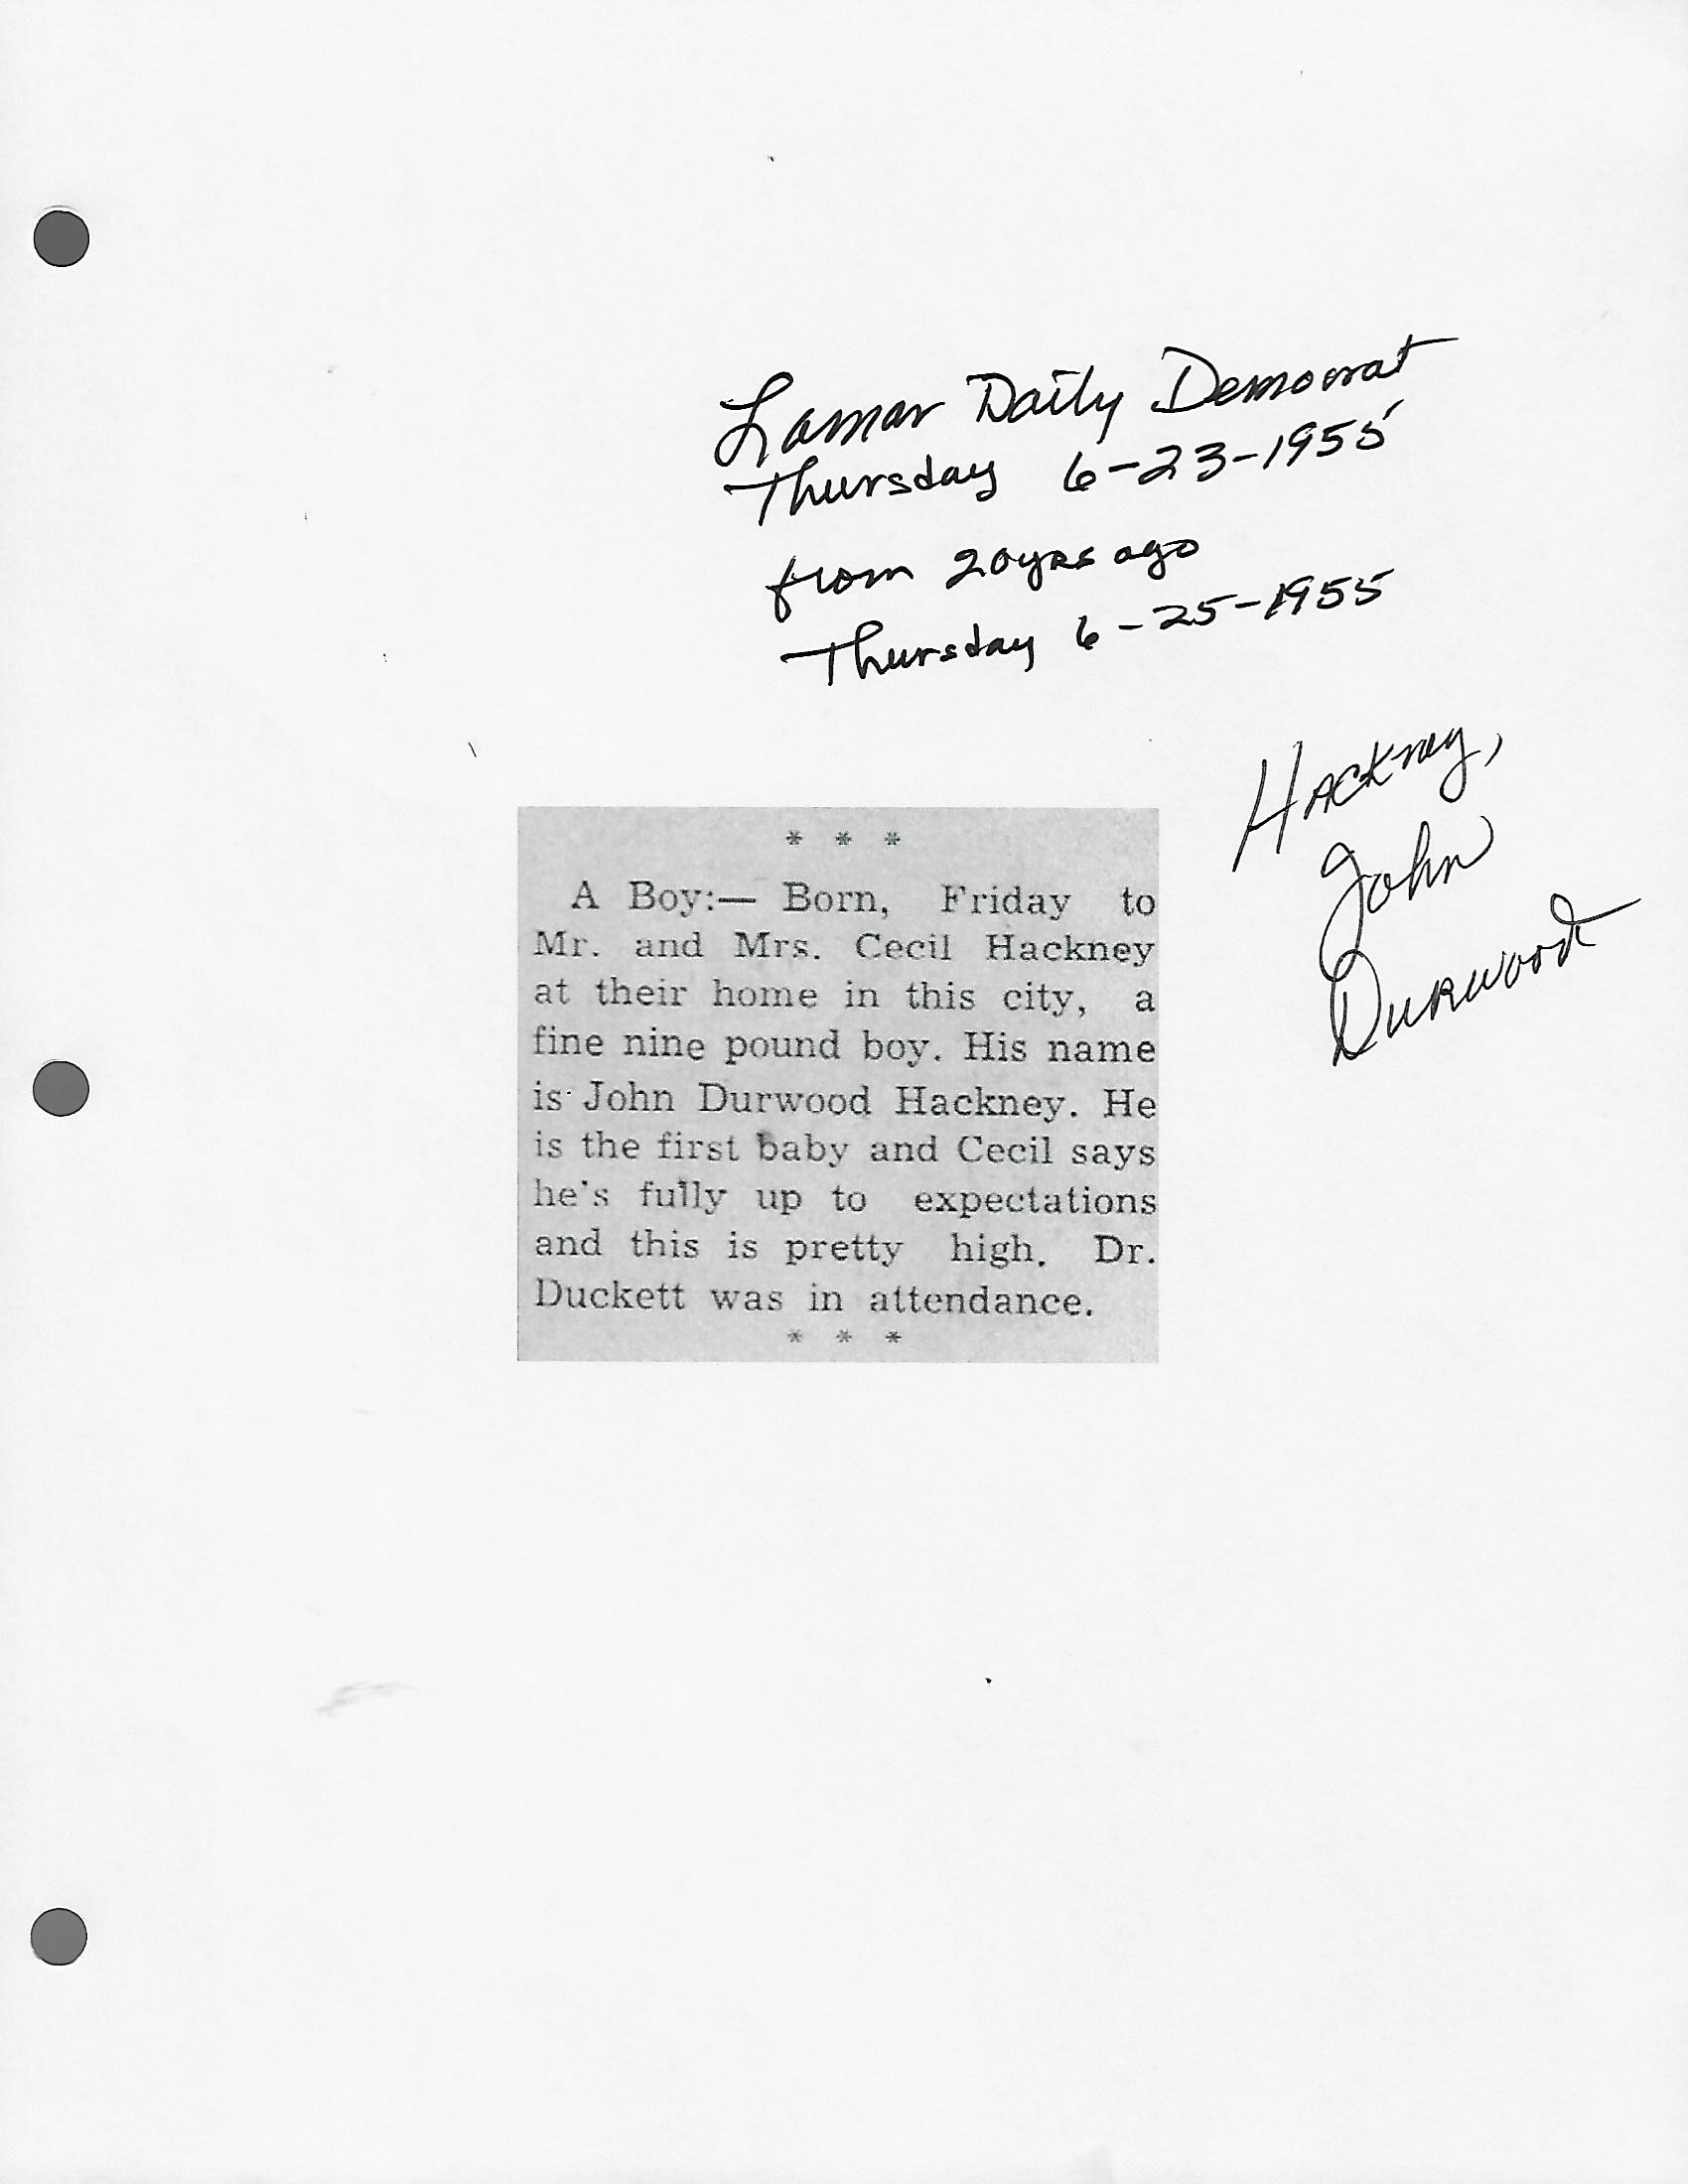 Lamar Daily Democrat
Thursday 6-23-1955
from 20yrs ago
Thursday 6-25-1955
Hackney,
John
Durwood
* * *
A Boy:— Born, Friday to
Mr. and Mrs. Cecil Hackney
at their home in this city, a
fine nine pound boy. His name
is John Durwood Hackney. He
is the first baby and Cecil says
he's fully up to expectations
and this is pretty high. Dr.
Duckett was in attendance.
* * *